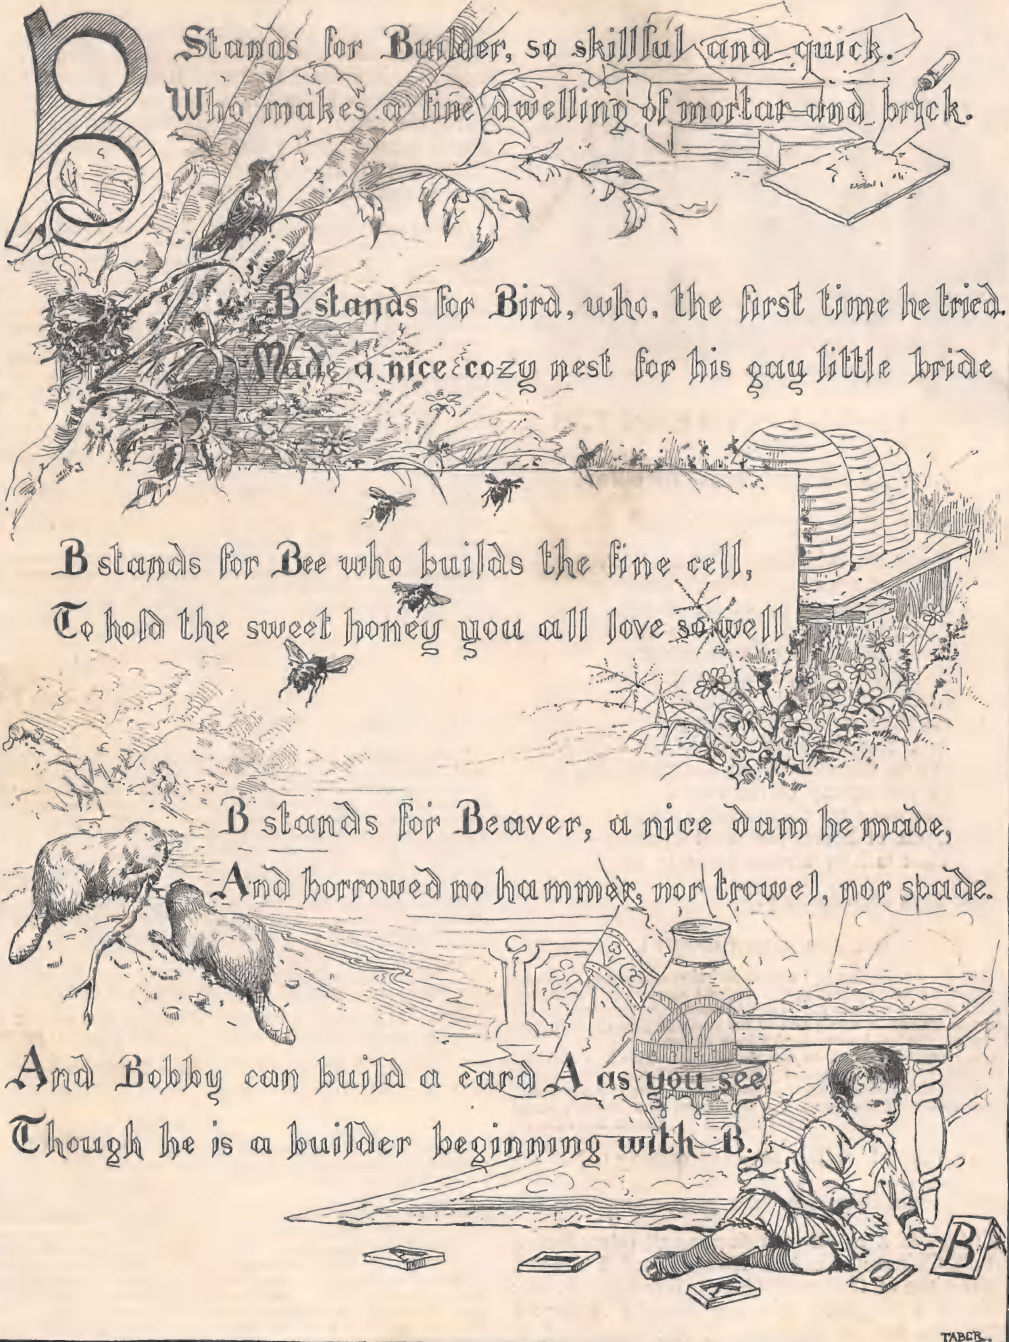 B Stands for Builder, so skillful and quick.
Who makes a fine dwelling of mortar and brick.
B stands for Bird, who, the first time he tried.
Made a nice & cozy nest for his gay little bride
B stands for Bee who builds the fine cell,
To hold the sweet honey you all love so well
B stands for Beaver, a nice dam he made,
And borrowed no hammer, nor trowel, nor spade.
And Bobby can build a card A as you see,
Though he is a builder beginning with B.
B A
TABER.